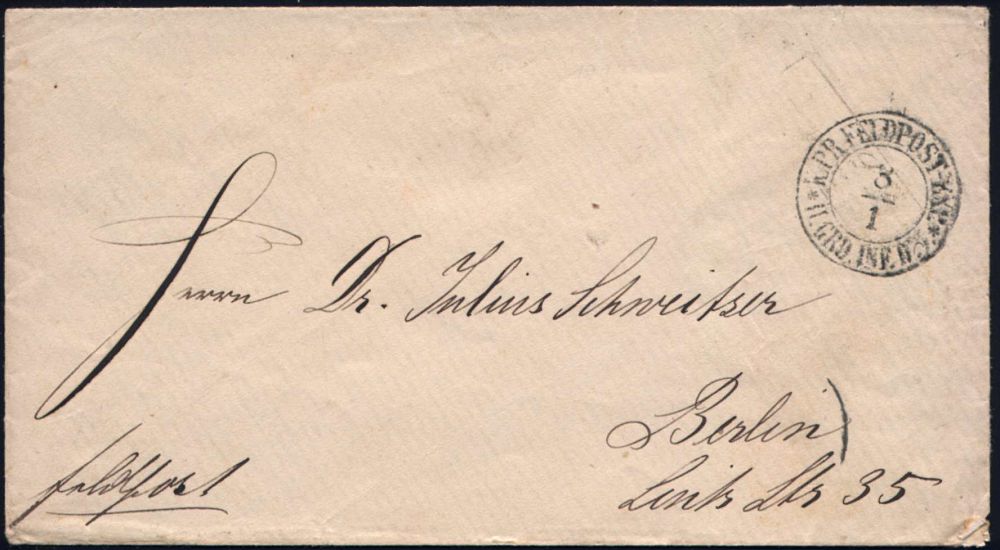 K.PR.FELDPOST-EXP.
8
1
II. GRD. INF. D.
Herrn Dr. Julius Schweitzer
Berlin
Str 35
Feldpost